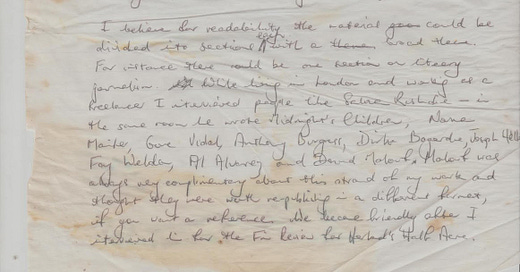 I believe for readability the material could be
divided into sections each with a broad theme.
For instance there could be one section on literary
journalism. While living in London and working as a
freelancer I interviewed people like Salman Rushdie – in
the same room he wrote Midnight's Children, Norman
Mailer, Gore Vidal, Anthony Burgess, Dirk Bogarde, Joseph Heller
Fay Weldon, Al Alvarez and David Malouf. Malouf was
always very complimentary about this strand of my work and
thought they were worth republishing in a different format,
if you want a reference. We became friendly after I
interviewed him for the Fin Review for Harland's Half Acre.